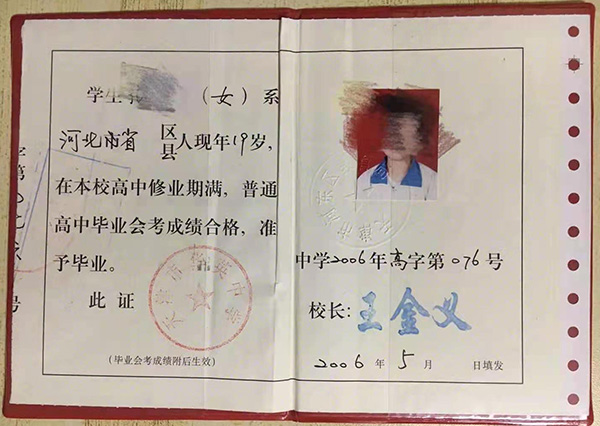 学生
（女）系
河北市省 区县人现年19岁，
在本校高中修业期满，普通
高中毕业会考成绩合格，准
予毕业。
此 证
（毕业会考成绩附后生效）
中学2006年高字第076号
校长：王金义
2006 年 5 月 日填发